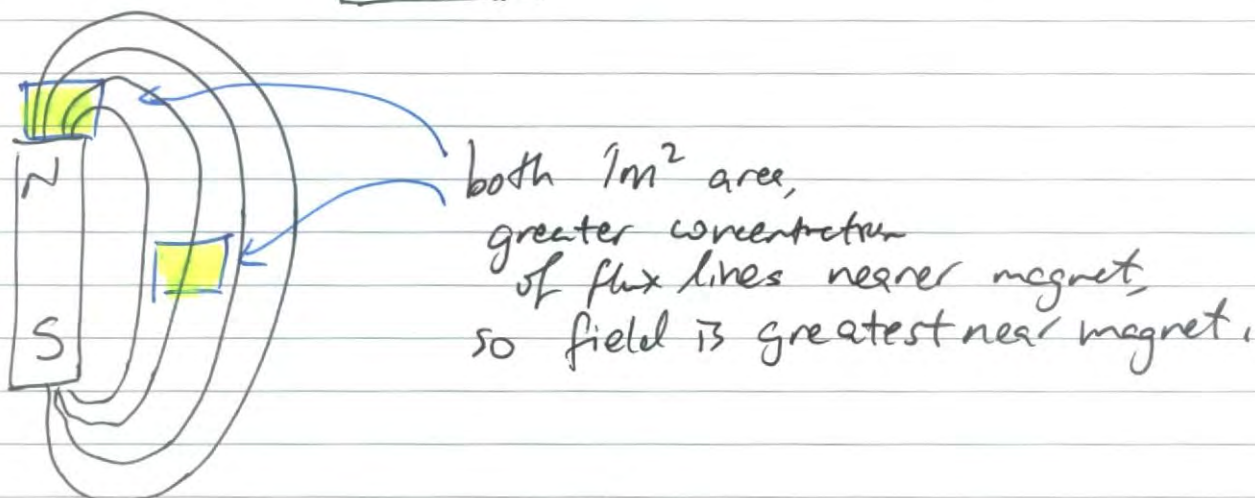 N
S
both 1m² area,
greater concentration
of flux lines nearer magnet,
so field is greatest near magnet.